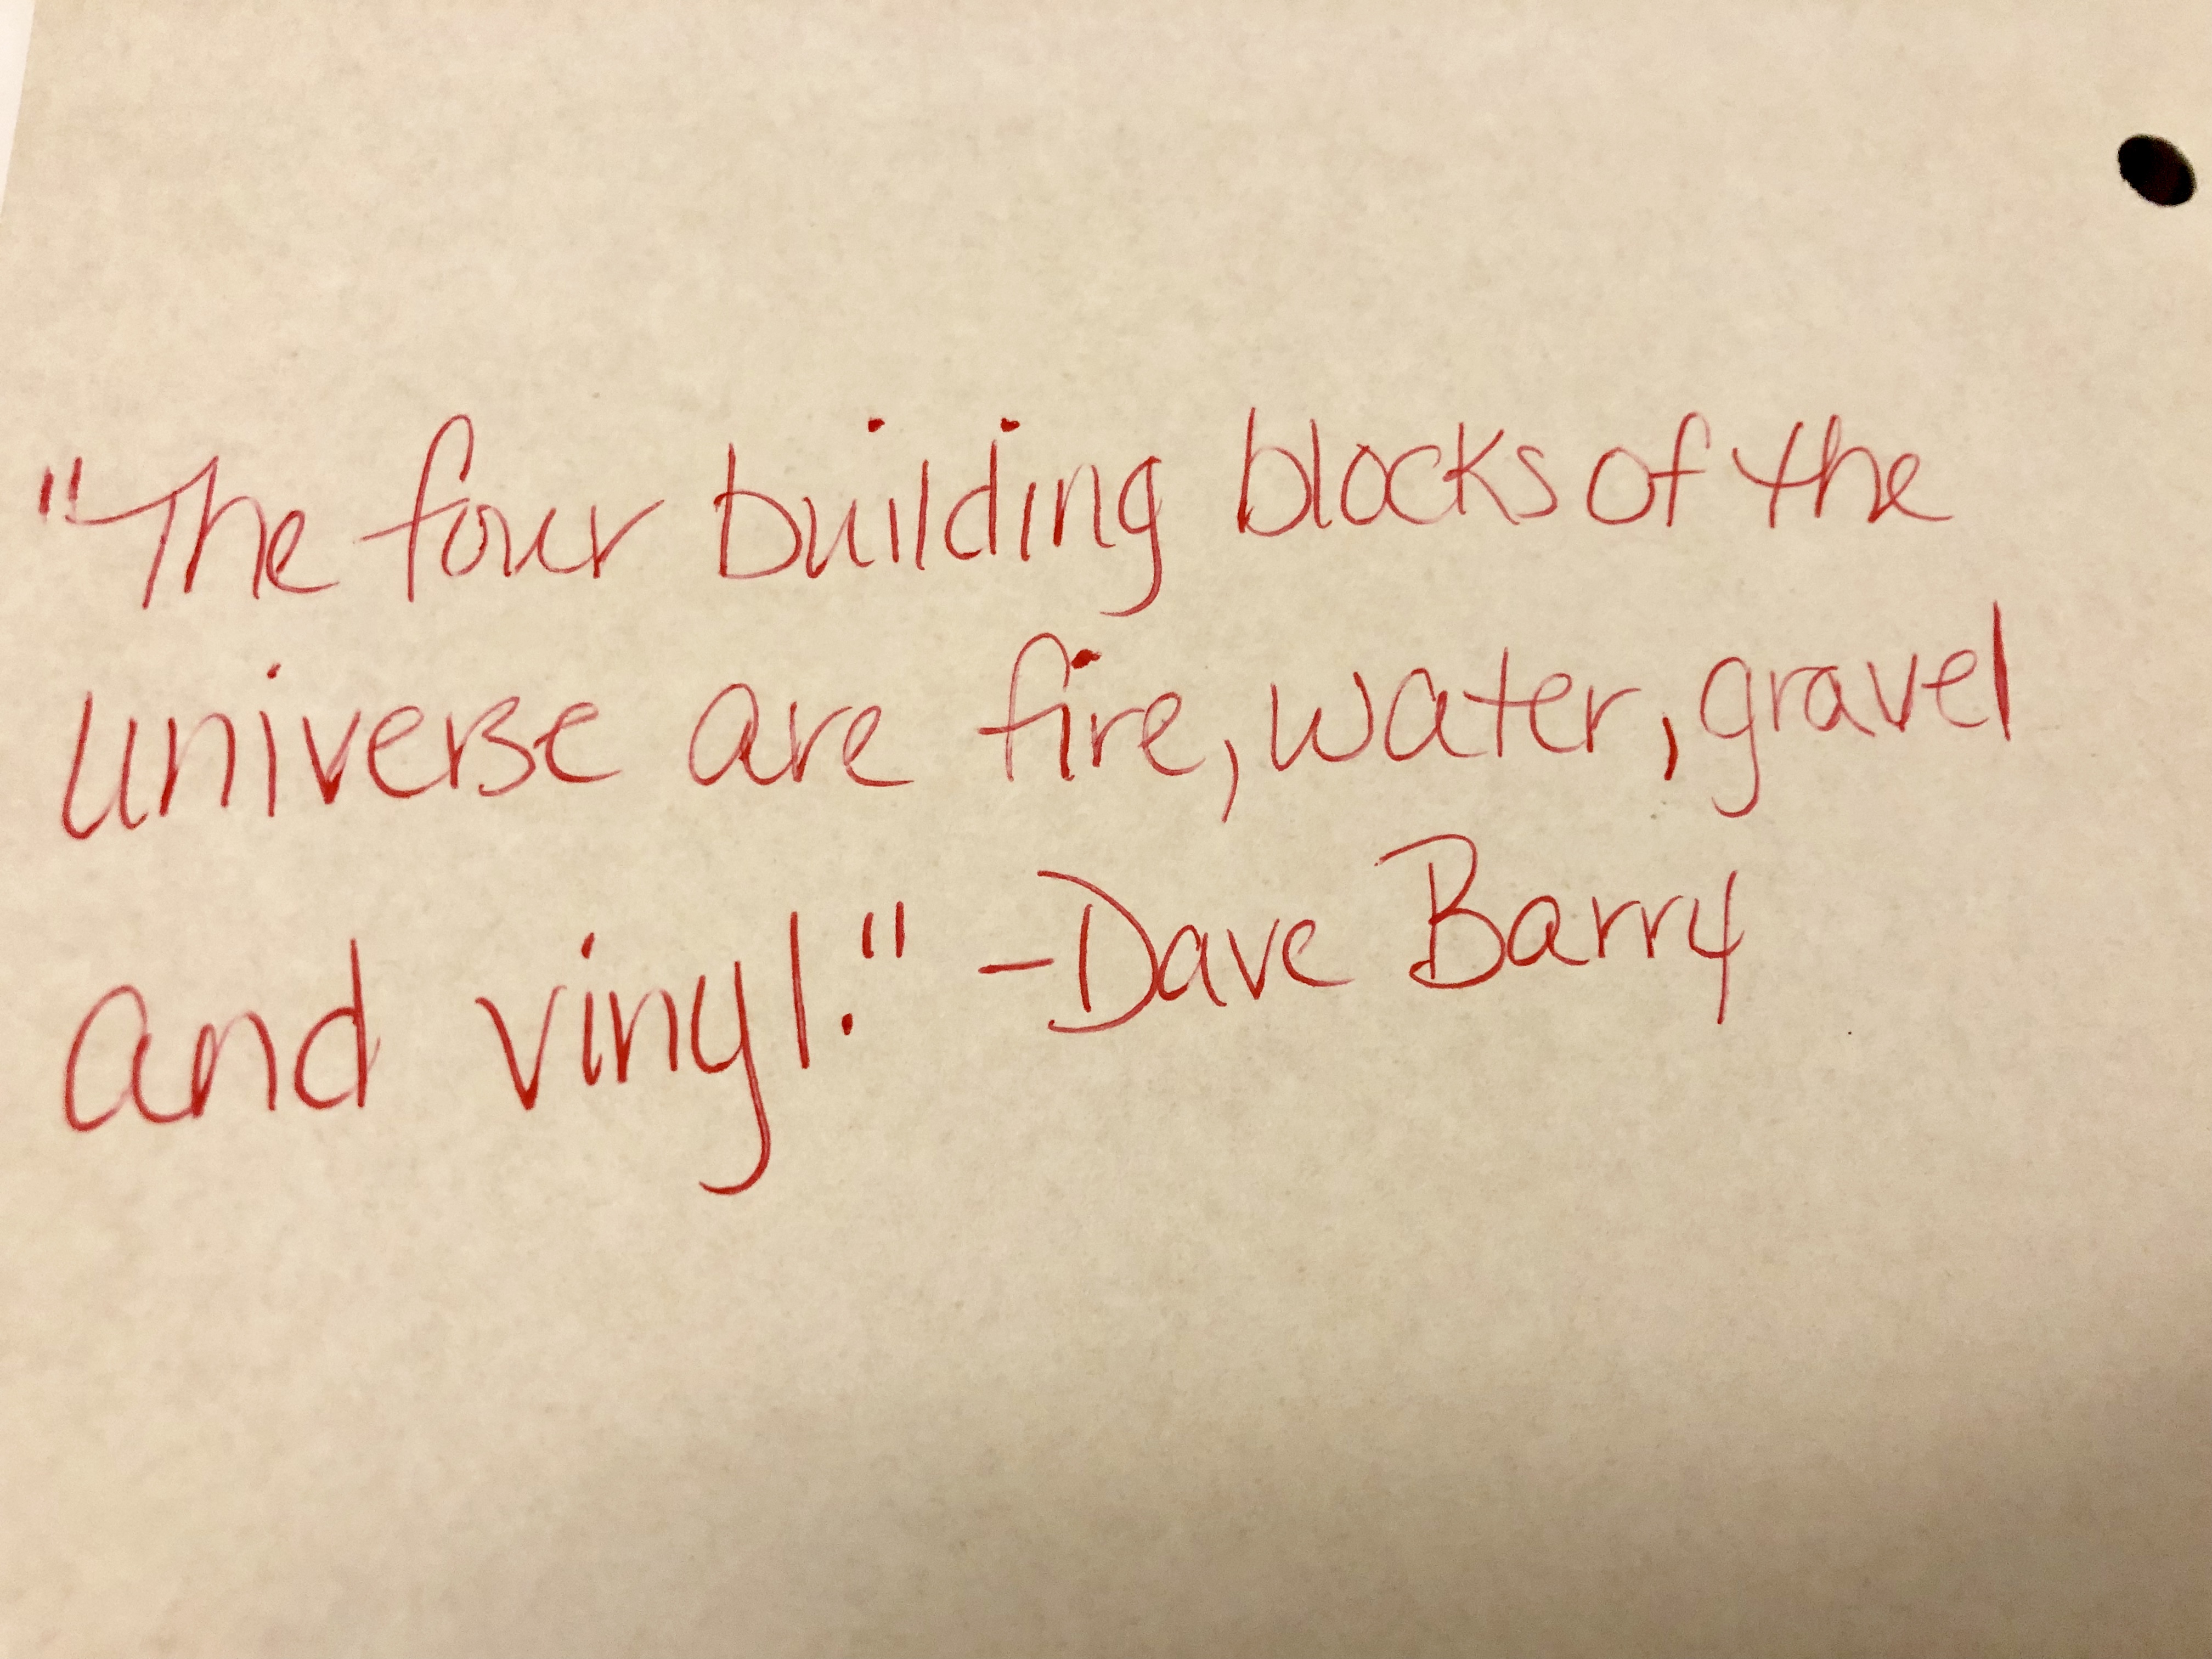 "The four building blocks of the
universe are fire, water, gravel
and vinyl." -Dave Barry